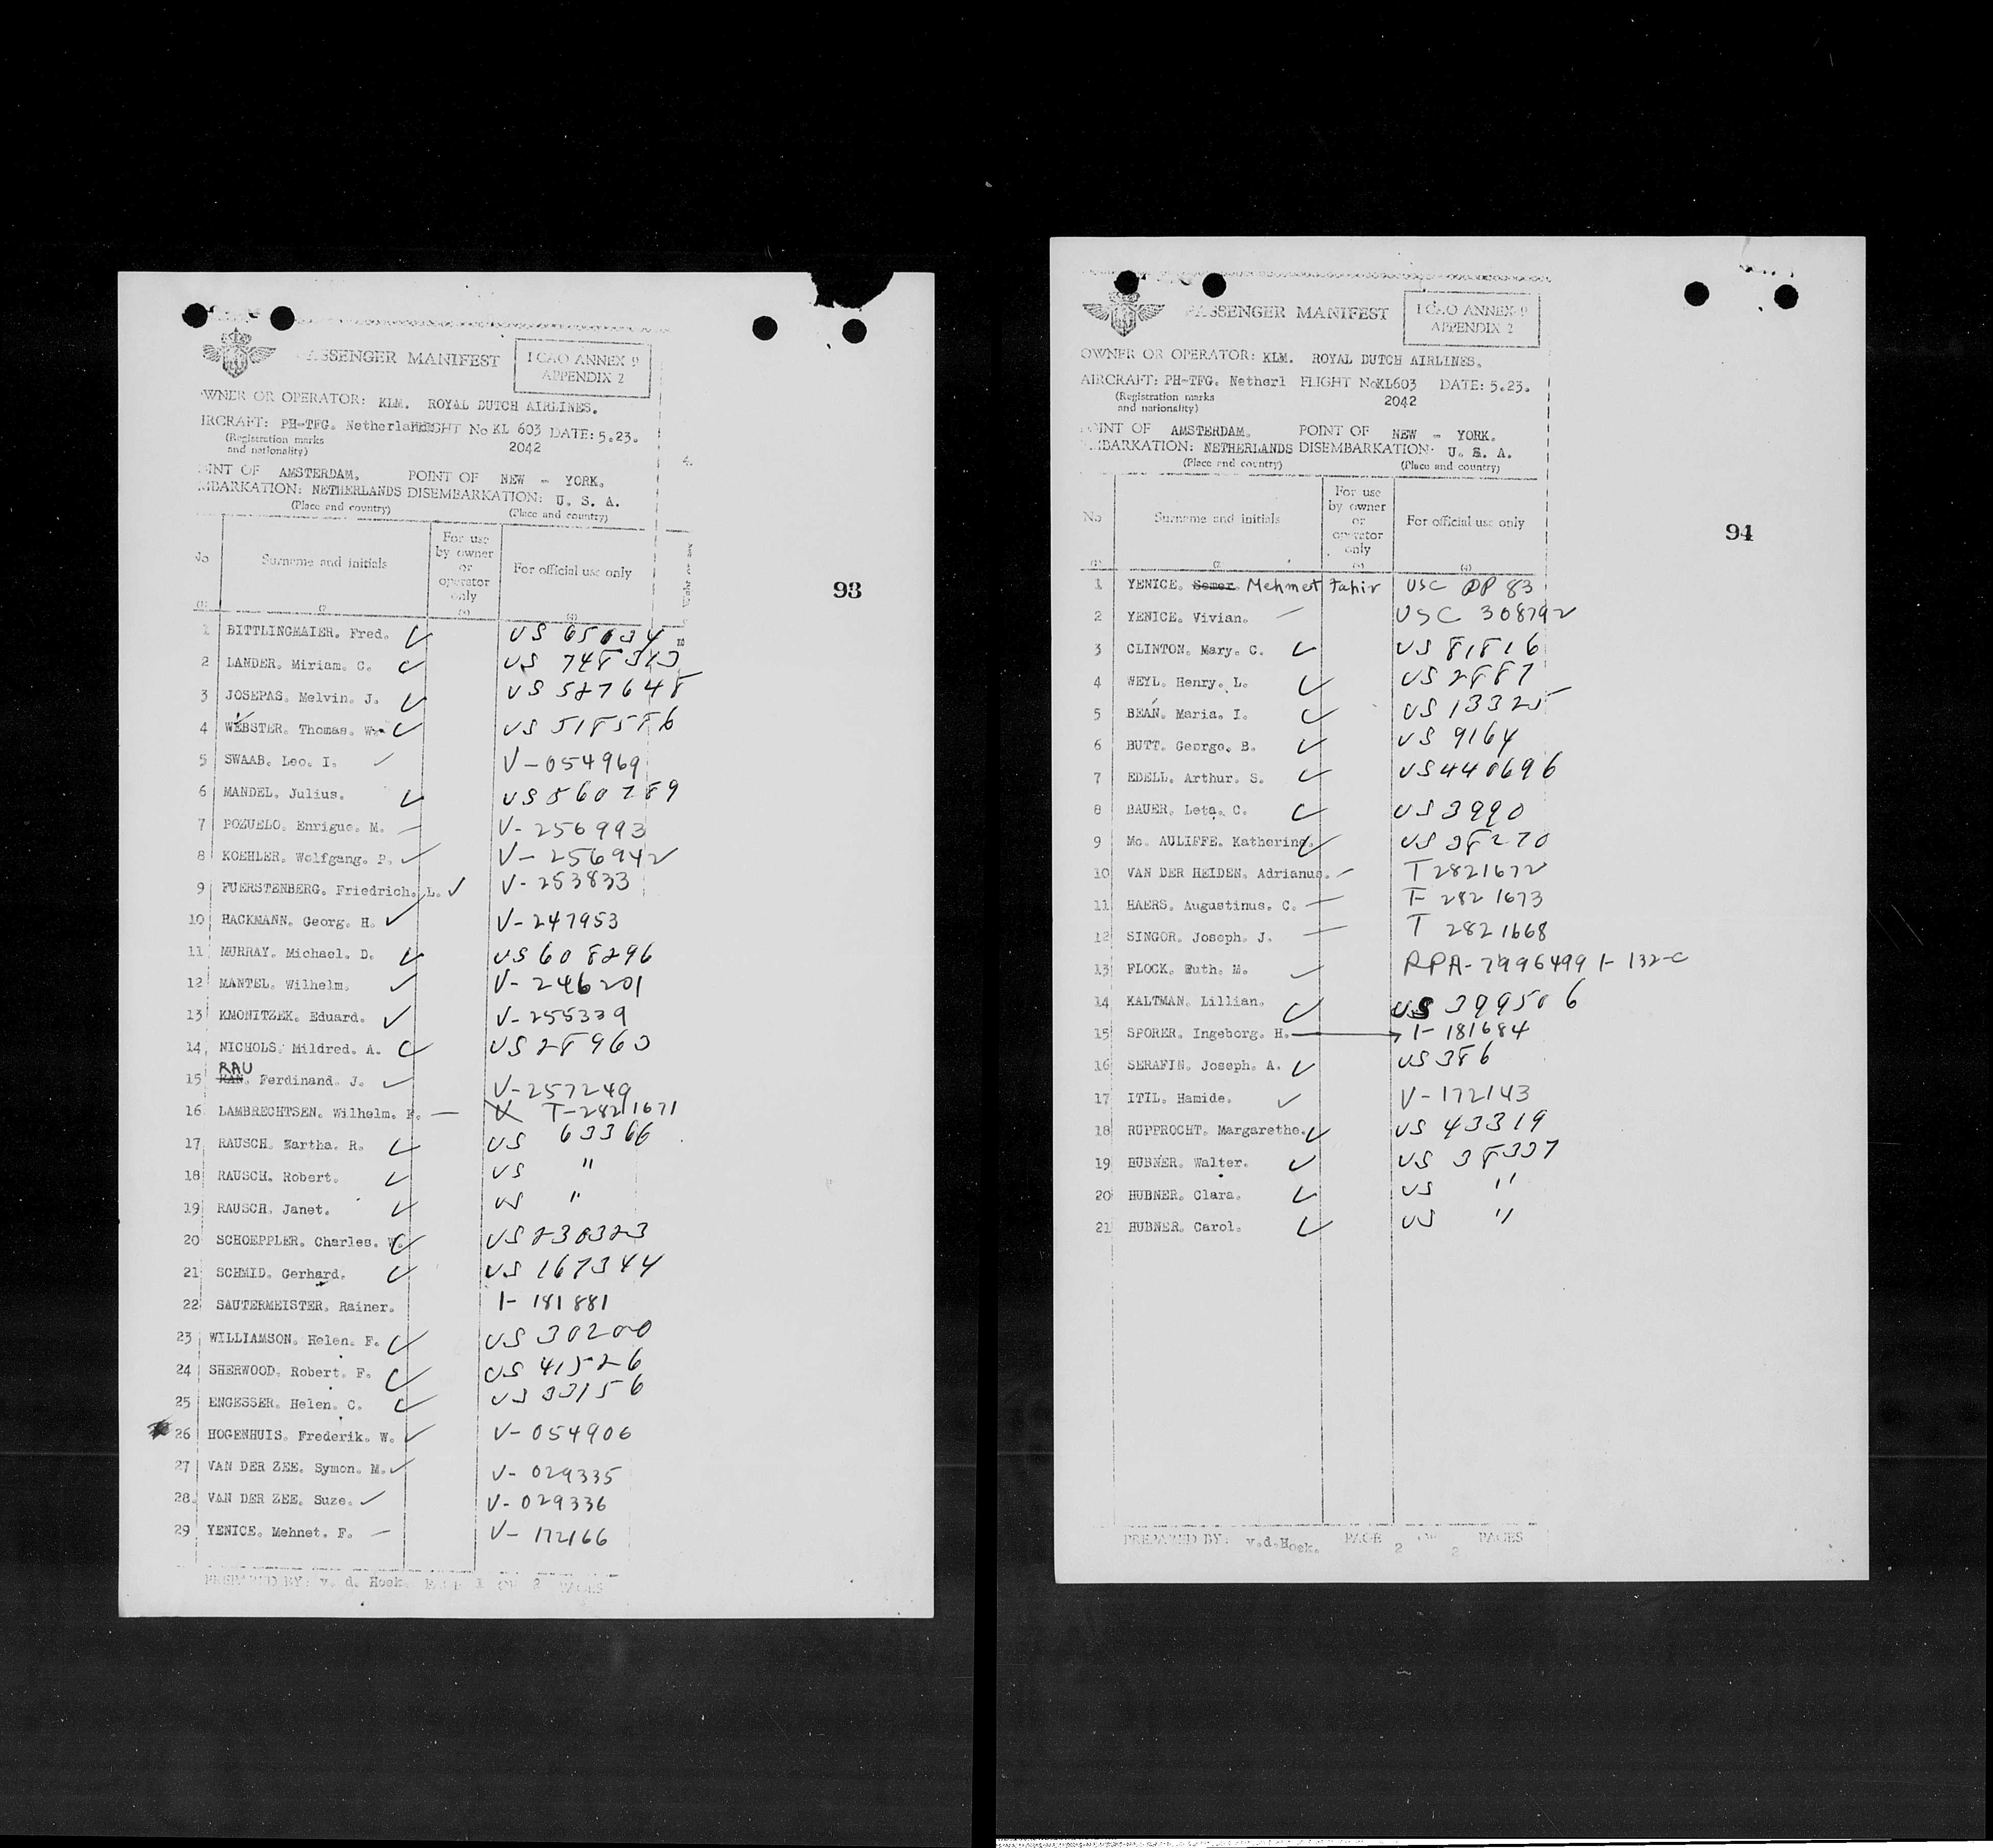 ASSENGER MANIFEST
I CAO ANNEX 9
APPENDIX 2
WNER OR OPERATOR: KLM. ROYAL DUTCH AIRLINES.
IRCRAFT: PH-TFG. Netherlands FLIGHT No KL 603 DATE: 5.23.
(Registration marks
and nationality)
2042
INT OF AMSTERDAM. POINT OF NEW - YORK.
MBARKATION: NETHERLANDS DISEMBARKATION: U. S. A.
(Place and country) (Place and country)
4.
No Surname and initials For use by owner or operator only For official use only
93
1 BITTLINGMAIER. Fred. US 65634
2 LANDER. Miriam. C. US 748343
3 JOSEPAS. Melvin. J. US 587648
4 WEBSTER. Thomas. W. US 518586
5 SWAAB. Leo. I. V-054969
6 MANDEL. Julius. US 560789
7 POZUELO. Enrique. M. V-256993
8 KOEHLER. Wolfgang. P. V-256942
9 FUERSTENBERG. Friedrich. L. V-253833
10 HACKMANN. Georg. H. V-247953
11 MURRAY. Michael. D. US 608296
12 MANTEL. Wilhelm. V-246201
13 KMONITZEK. Eduard. V-255339
14 NICHOLS. Mildred. A. US 28963
RAU
15 RAN. Ferdinand. J. V-257249
16 LAMBRECHTSEN. Wilhelm. F. V T-2821671
17 RAUSCH. Eartha. R. US 63366
18 RAUSCH. Robert. US "
19 RAUSCH. Janet. US "
20 SCHOEPPLER. Charles. W. US 230323
21 SCHMID. Gerhard. US 167344
22 SAUTERMEISTER. Rainer. I-181881
23 WILLIAMSON. Helen. F. US 30200
24 SHERWOOD. Robert. F. US 41526
25 ENGESSER. Helen. C. US 33156
26 HOGENHUIS. Frederik. W. V-054906
27 VAN DER ZEE. Symon. M. V-029335
28 VAN DER ZEE. Suze. V-029336
29 YENICE. Mehnet. F. V-172166
PREPARED BY: v. d. Hoek. PAGE 1 OF 2 PAGES
PASSENGER MANIFEST
I CAO ANNEX 9
APPENDIX 2
OWNER OR OPERATOR: KLM. ROYAL DUTCH AIRLINES.
AIRCRAFT: PH-TFG. Netherl FLIGHT No KL603 DATE: 5.23.
(Registration marks
and nationality)
2042
OINT OF AMSTERDAM. POINT OF NEW - YORK.
MBARKATION: NETHERLANDS DISEMBARKATION: U. S. A.
(Place and country) (Place and country)
No Surname and initials For use by owner or operator only For official use only
94
1 YENICE. Semer. Mehmet Tahir USC DP 83
2 YENICE. Vivian. USC 308792
3 CLINTON. Mary. C. US 81816
4 WEYL. Henry. L. US 2887
5 BEAN. Maria. I. US 13325
6 BUTT. George. B. US 9164
7 EDELL. Arthur. S. US 440696
8 BAUER. Leta. C. US 3990
9 Mc. AULIFFE. Katherine. US 38270
10 VAN DER HEIDEN. Adrianus. T 2821672
11 HAERS. Augustinus. C. T- 2821673
12 SINGOR. Joseph. J. T 2821668
13 FLOCK. Ruth. M. RPA-7996499 I-132-C
14 KALTMAN. Lillian. US 399506
15 SPORER. Ingeborg. H. I-181684
16 SERAFIN. Joseph. A. US 386
17 ITIL. Hamide. V-172143
18 RUPPROCHT. Margarethe. US 43319
19 HUBNER. Walter. US 38337
20 HUBNER. Clara. US "
21 HUBNER. Carol. US "
PREPARED BY: v.d.Hoek. PAGE 2 OF 2 PAGES